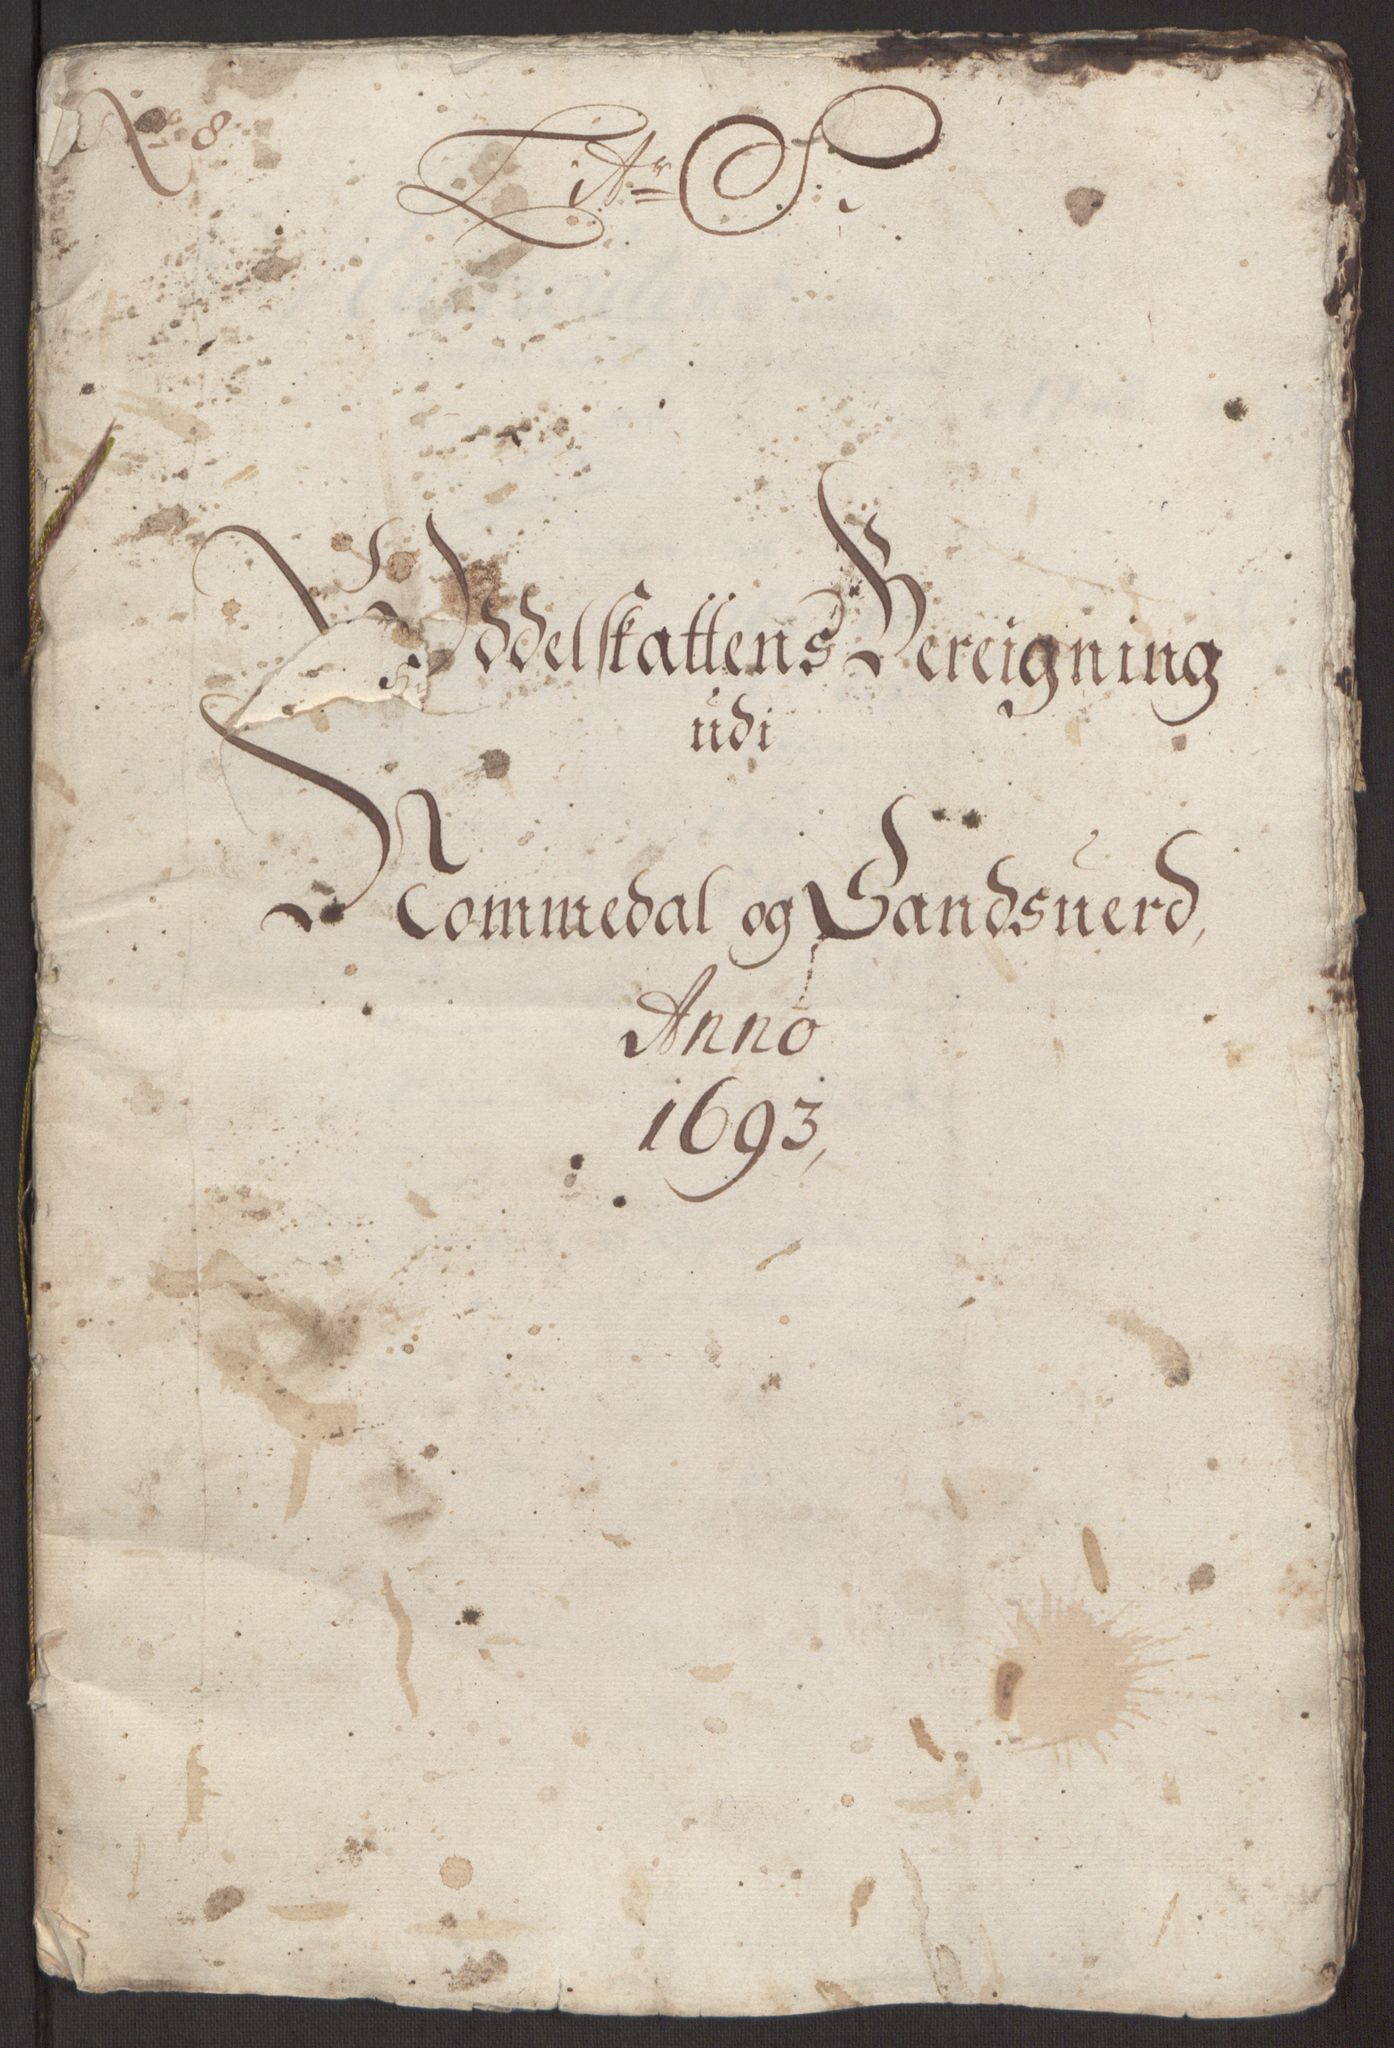 No 8
Litr S.
Oddelskattens Bereigning
udi
Nommedal og Sandsuerd,
Anno
1693,